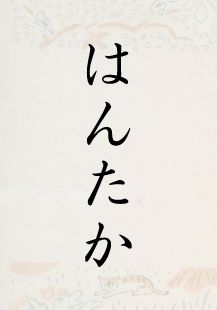 はんたか